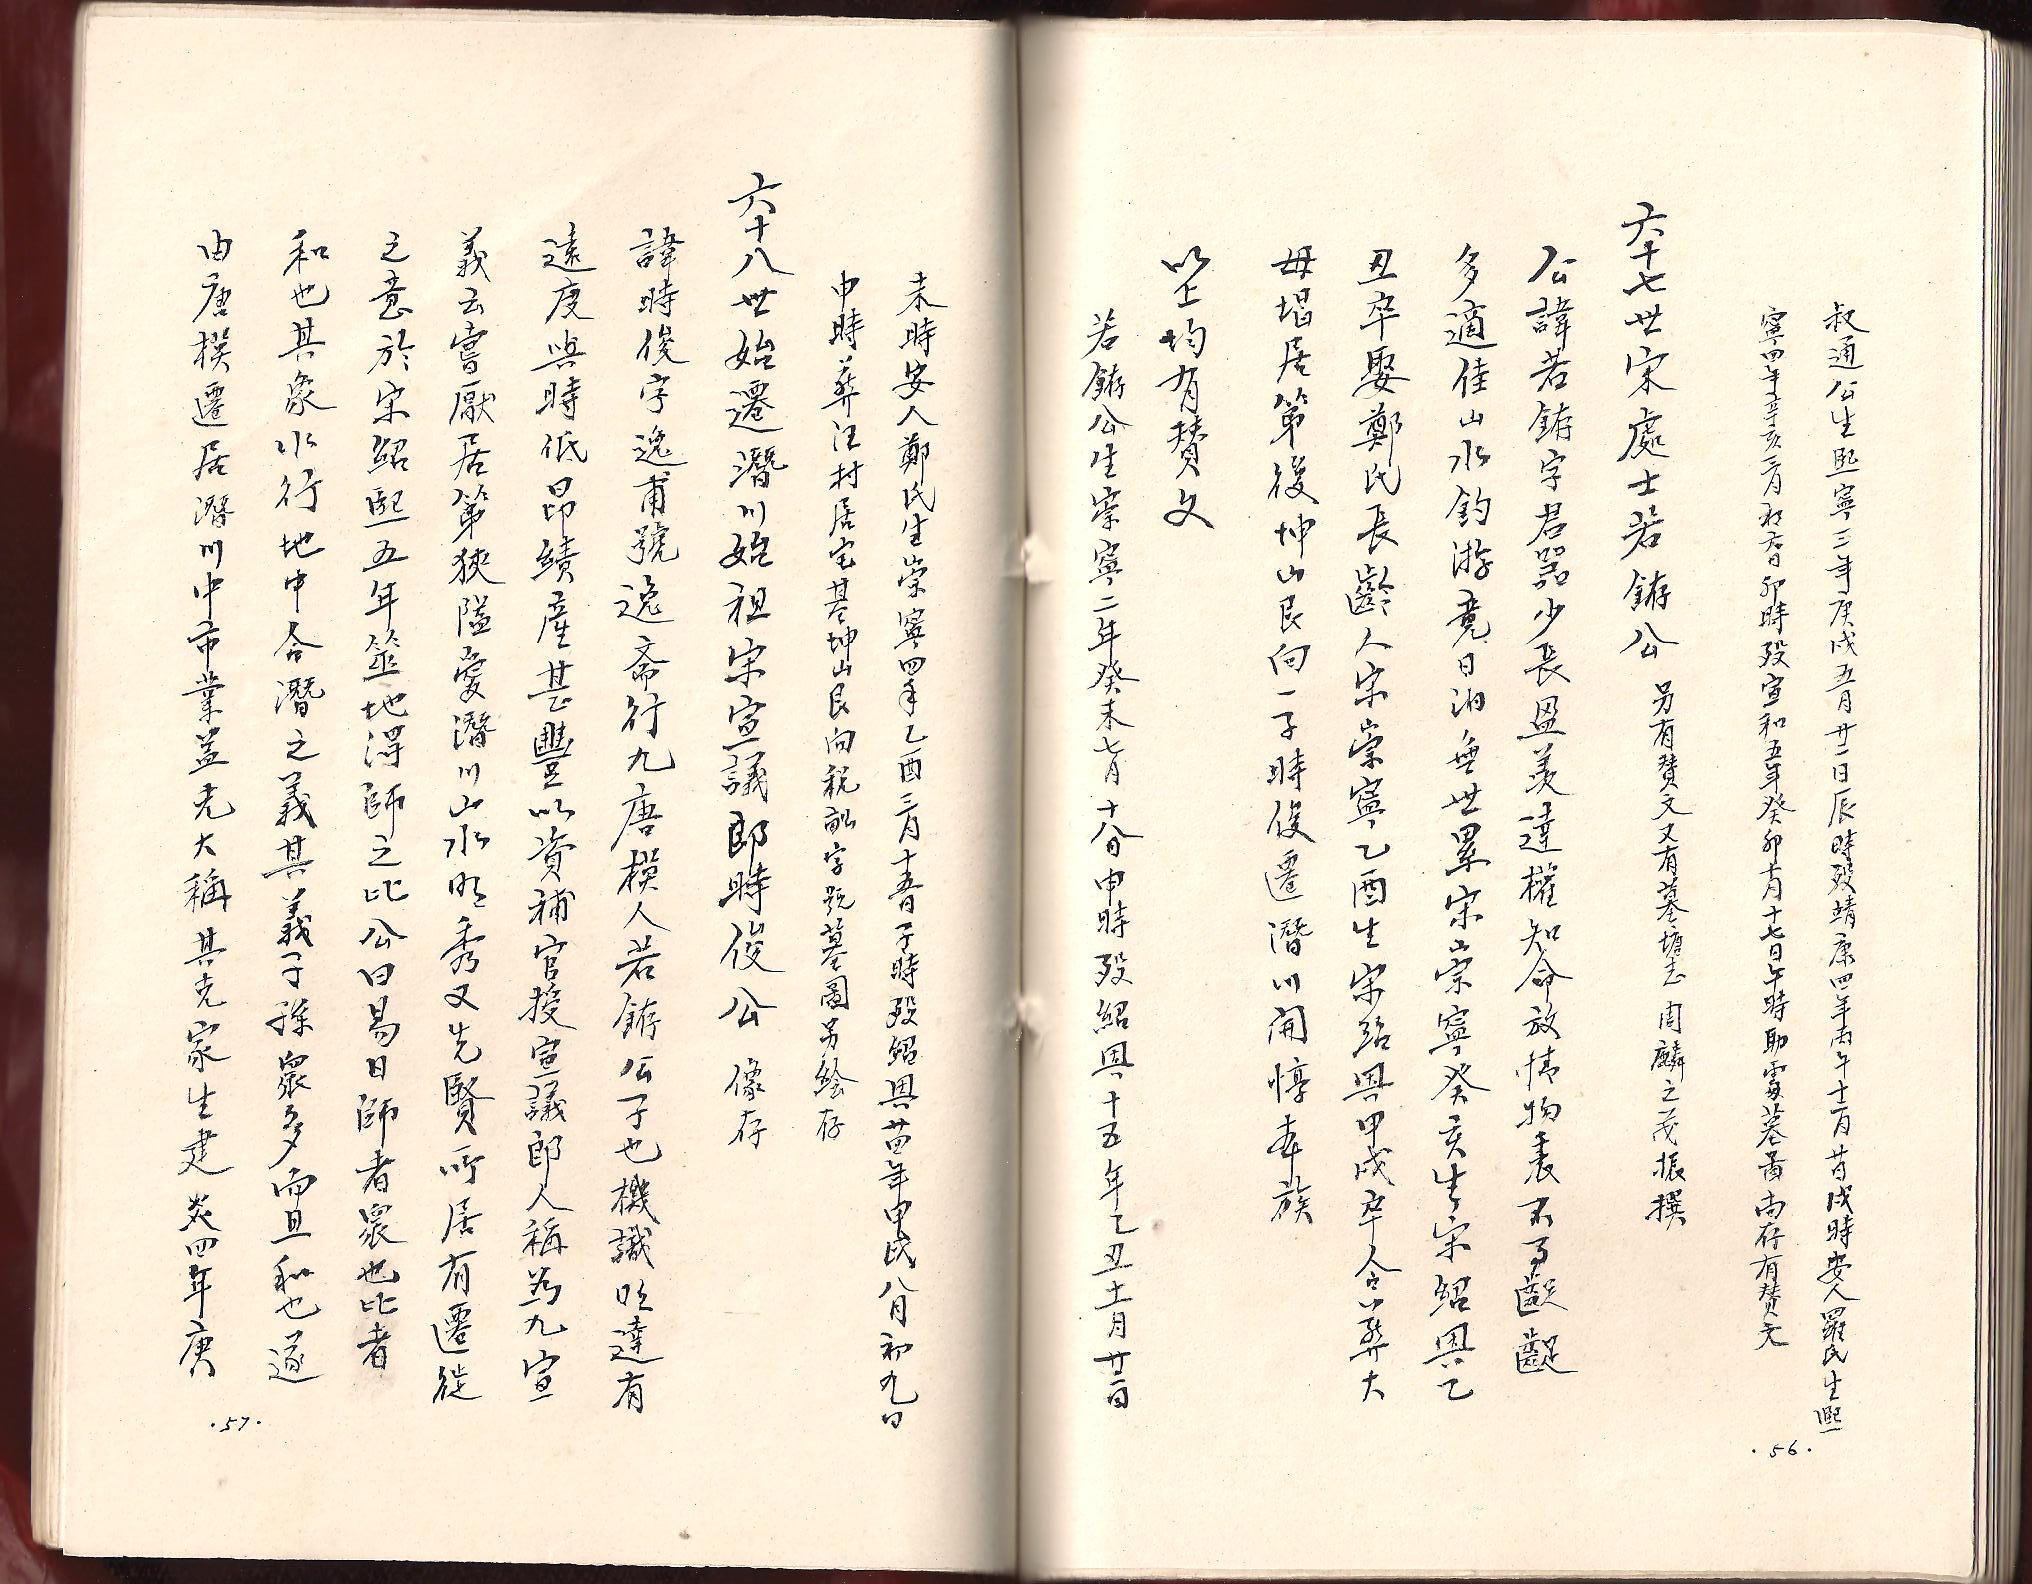 叔通公生熙寧三年庚戌五月廿一日辰時歿靖康四年丙午十二月廿日戌時安人羅氏生熙
寧四年辛亥三月初六日卯時歿宣和五年癸卯十月十七日午時勅處墓圖尚存有贊文
六十七世宋處士若鏥公 另有贊文又有墓壙志 周麟之茂振撰
公諱若鏥字君器少長盈羨達權知命放情物表不事齷齪
多適佳山水釣游竟日泊無世累宋崇寧癸亥生宋紹興乙
丑卒娶鄭氏長齡人宋崇寧乙酉生宋紹興甲戌卒合葬大
母堨居第後坤山艮向一子時俊遷潛川開惇本族
以上均有贊文
若鏥公生崇寧二年癸未七月十八日申時歿紹興十五年乙丑十一月廿二日
未時安人鄭氏生崇寧四年乙酉三月十五日子時歿紹興廿四年甲戌八月初九日
申時葬汪村居宅基坤山艮向稅 字號墓圖另繪存
六十八世始遷潛川始祖宋宣議郎時俊公 像存
諱時俊字逸甫號逸斎行九唐模人若鏥公子也機識明達有
遠度與時低昂績產甚豐以資補官授宣議郎人稱為九宣
義云嘗厭居第狹隘愛潛川山水明秀又先賢所居有遷徙
之意於宋紹熙五年筮地得師之比公曰易曰師者眾也比者
和也其象水行地中合潛之義其義子孫眾多而且和也遂
由唐模遷居潛川中市業益充大稱其克家生建炎四年庚
·56·
·57·